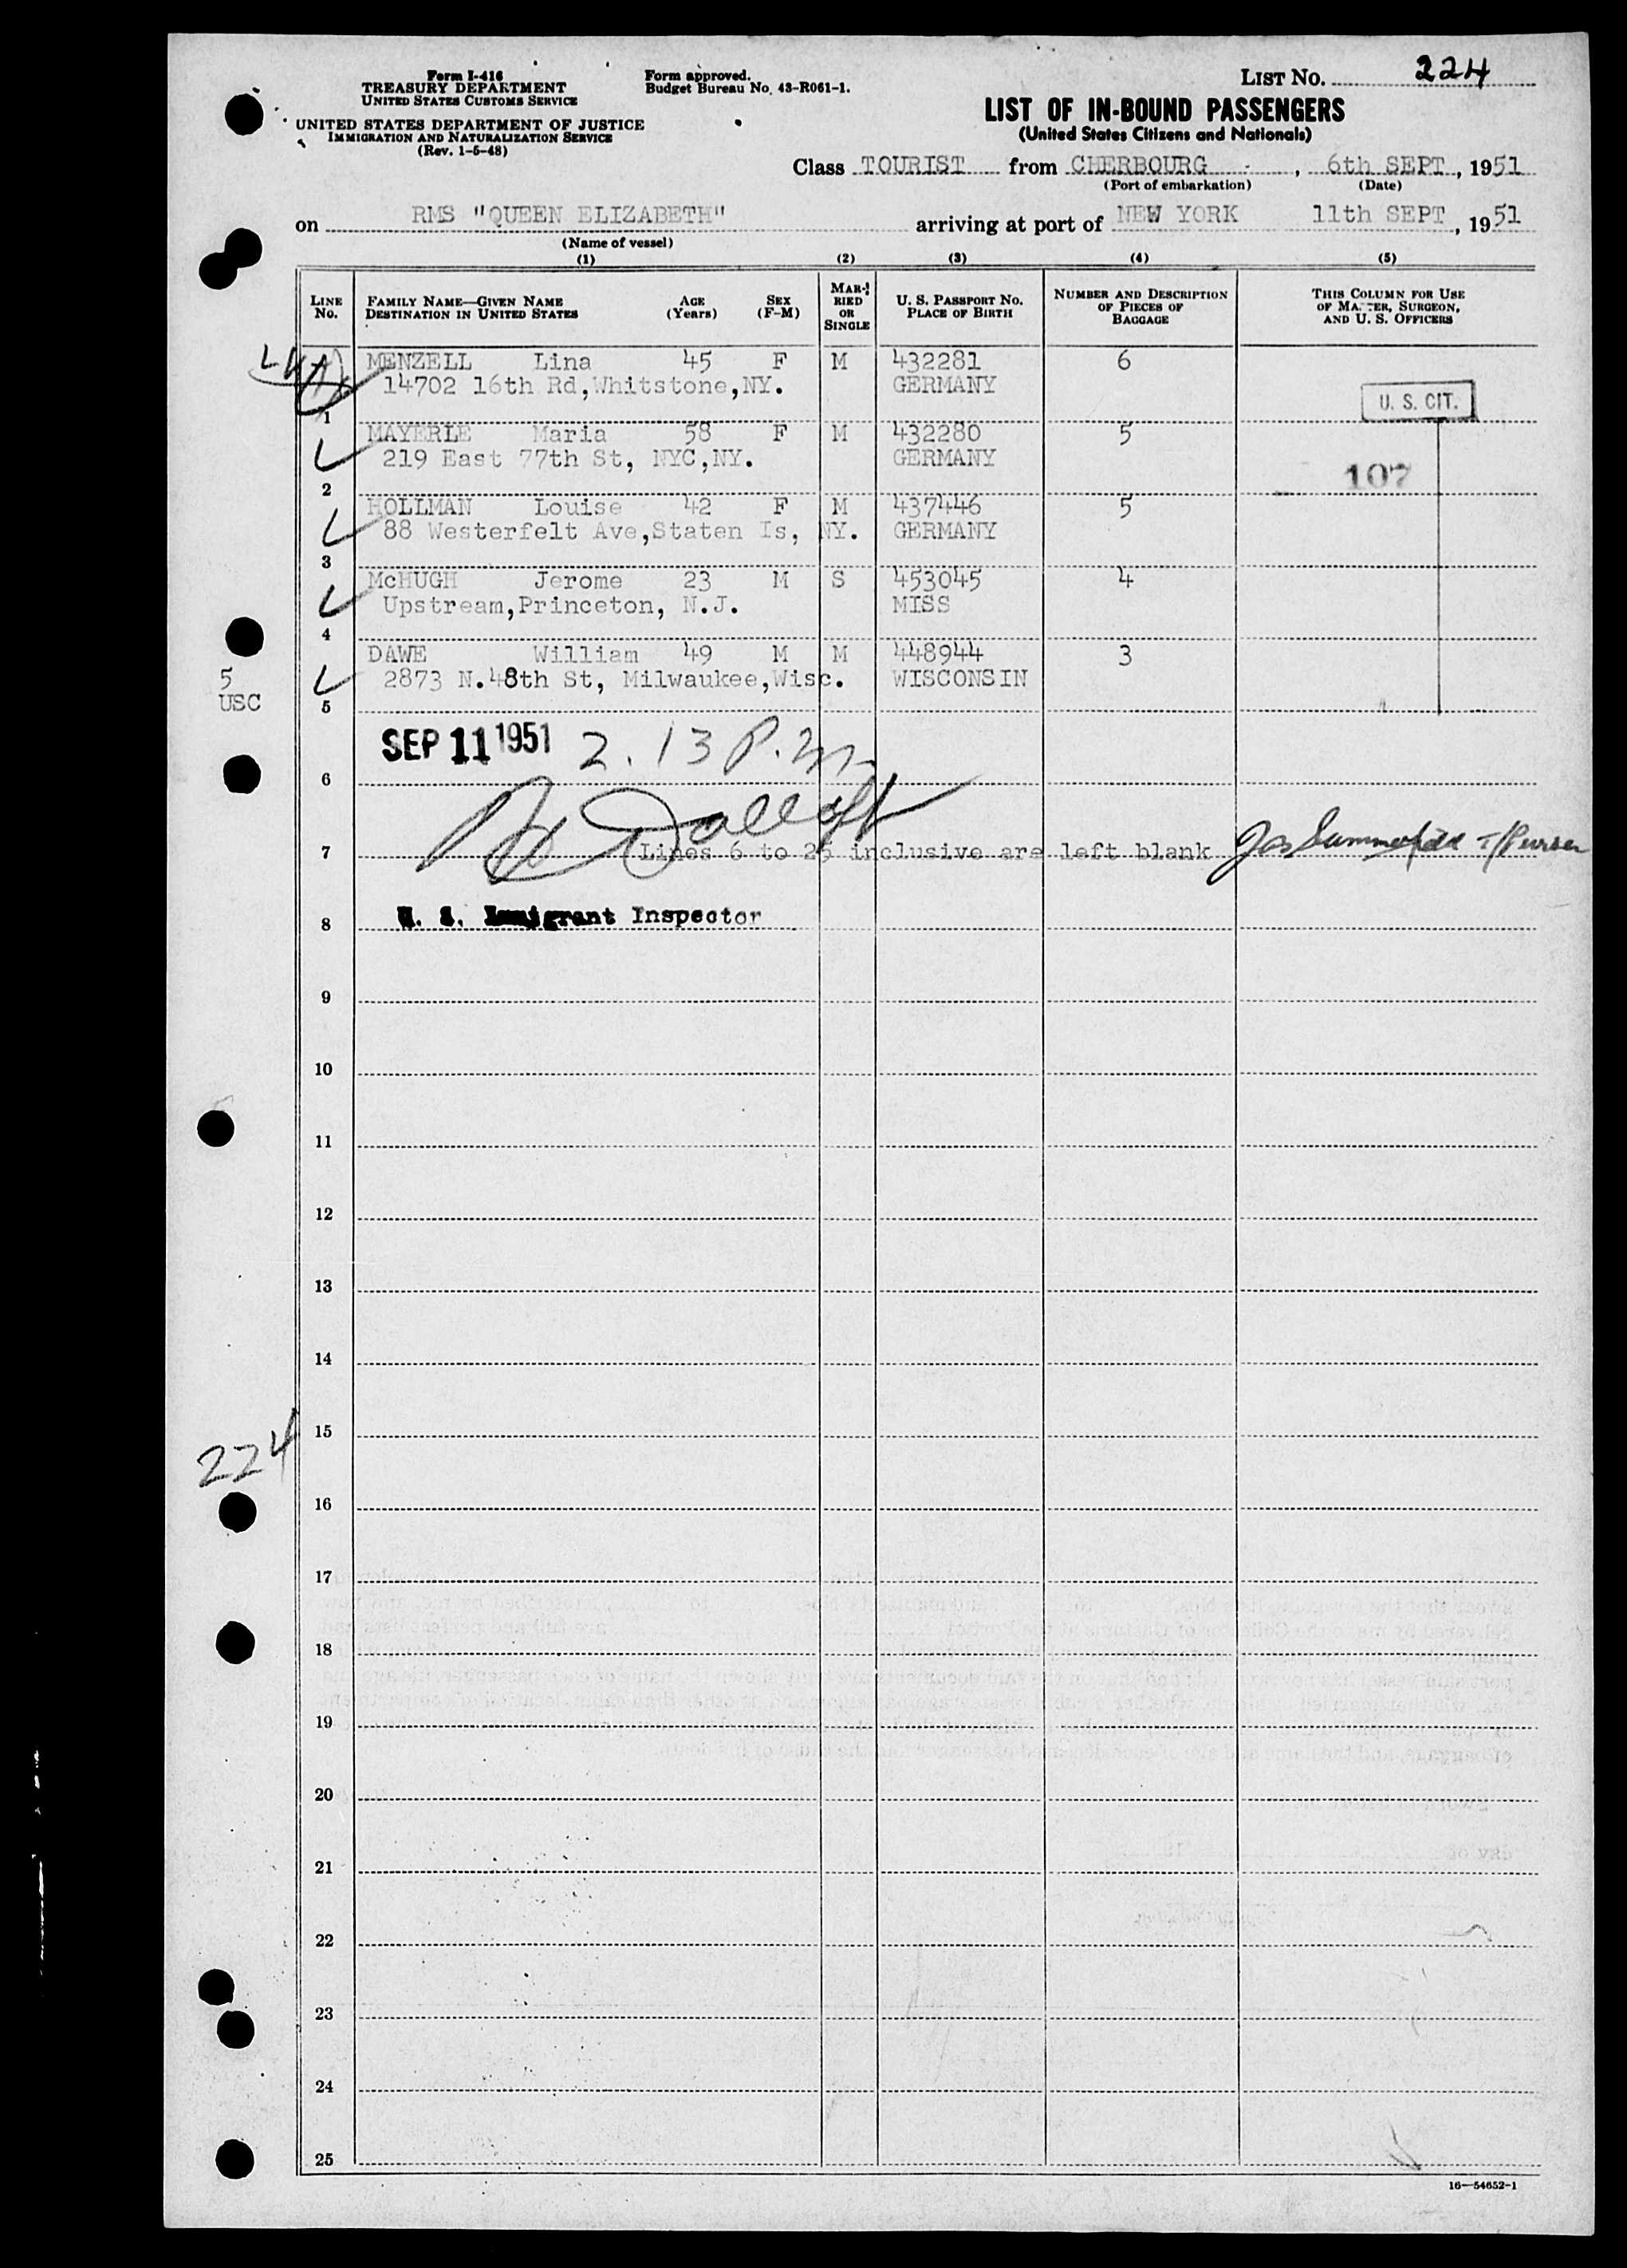 Form I-416
TREASURY DEPARTMENT
UNITED STATES CUSTOMS SERVICE
UNITED STATES DEPARTMENT OF JUSTICE
IMMIGRATION AND NATURALIZATION SERVICE
(Rev. 1-5-48)
Form approved.
Budget Bureau No. 43-R061-1.
LIST NO. 224
LIST OF IN-BOUND PASSENGERS
(United States Citizens and Nationals)
Class TOURIST from CHERBOURG, 6th SEPT, 1951
(Port of embarkation) (Date)
on RMS "QUEEN ELIZABETH" arriving at port of NEW YORK 11th SEPT, 1951
(Name of vessel)
(1) (2) (3) (4) (5)
LINE NO. FAMILY NAME—GIVEN NAME DESTINATION IN UNITED STATES AGE (Years) SEX (F-M) MARRIED OR SINGLE U. S. PASSPORT NO. PLACE OF BIRTH NUMBER AND DESCRIPTION OF PIECES OF BAGGAGE THIS COLUMN FOR USE OF MASTER, SURGEON, AND U. S. OFFICERS
MENZELL Lina 45 F M 432281 6
14702 16th Rd,Whitstone,NY. GERMANY
U. S. CIT.
1
MAYERLE Maria 58 F M 432280 5
219 East 77th St, NYC,NY. GERMANY
107
2
HOLLMAN Louise 42 F M 437446 5
88 Westerfelt Ave,Staten Is, NY. GERMANY
3
McHUGH Jerome 23 M S 453045 4
Upstream,Princeton, N.J. MISS
4
DAWE William 49 M M 448944 3
2873 N.48th St, Milwaukee,Wisc. WISCONSIN
5
USC
5
SEP 11 1951 2.13 P.M.
6
7 Lines 6 to 25 inclusive are left blank Jas Summerfield T/Purser
8 U. S. Immigrant Inspector
9
10
11
12
13
14
15
224
16
17
18
19
20
21
22
23
24
25
16—54652-1